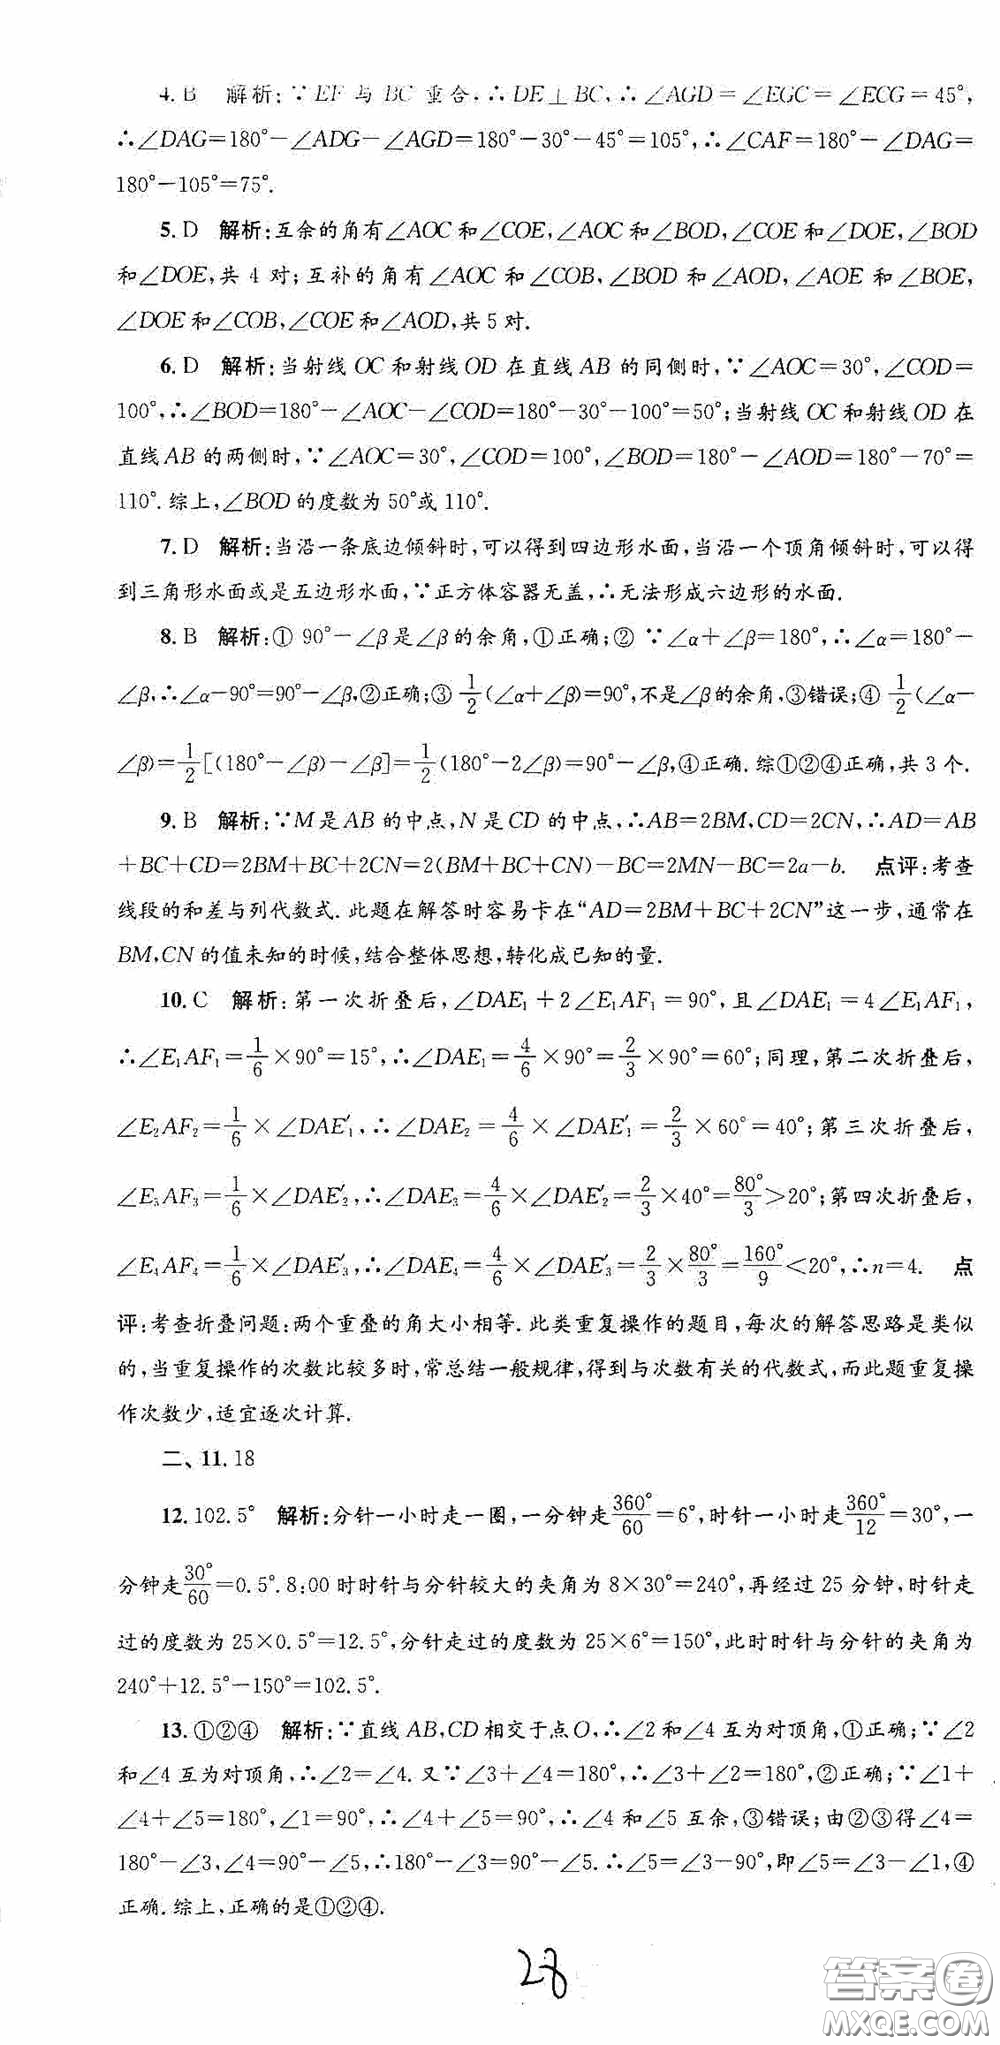 4. B 解析:∵EF与BC重合,∴DE⊥BC,∴∠AGD=∠EGC=∠ECG=45°,
∴∠DAG=180°-∠ADG-∠AGD=180°-30°-45°=105°,∴∠CAF=180°-∠DAG=
180°-105°=75°.
5. D 解析:互余的角有∠AOC和∠COE,∠AOC和∠BOD,∠COE和∠DOE,∠BOD
和∠DOE,共4对;互补的角有∠AOC和∠COB,∠BOD和∠AOD,∠AOE和∠BOE,
∠DOE和∠COB,∠COE和∠AOD,共5对.
6. D 解析:当射线OC和射线OD在直线AB的同侧时,∵∠AOC=30°,∠COD=
100°,∴∠BOD=180°-∠AOC-∠COD=180°-30°-100°=50°;当射线OC和射线OD在
直线AB的两侧时,∵∠AOC=30°,∠COD=100°,∠BOD=180°-∠AOD=180°-70°=
110°.综上,∠BOD的度数为50°或110°.
7. D 解析:当沿一条底边倾斜时,可以得到四边形水面,当沿一个顶角倾斜时,可以得
到三角形水面或是五边形水面,∵正方体容器无盖,∴无法形成六边形的水面.
8. B 解析:① 90°-∠β是∠β的余角,①正确;② ∵∠α+∠β=180°,∴∠α=180°-
∠β,∴∠α-90°=90°-∠β,②正确;③ 1/2(∠α+∠β)=90°,不是∠β的余角,③错误;④ 1/2(∠α-
∠β)=1/2[(180°-∠β)-∠β]=1/2(180°-2∠β)=90°-∠β,④正确.综①②④正确,共3个.
9. B 解析:∵M是AB的中点,N是CD的中点,∴AB=2BM,CD=2CN,∴AD=AB
+BC+CD=2BM+BC+2CN=2(BM+BC+CN)-BC=2MN-BC=2a-b. 点评:考查
线段的和差与列代数式.此题在解答时容易卡在“AD=2BM+BC+2CN”这一步,通常在
BM,CN的值未知的时候,结合整体思想,转化成已知的量.
10. C 解析:第一次折叠后,∠DAE₁+2∠E₁AF₁=90°,且∠DAE₁=4∠E₁AF₁,
∴∠E₁AF₁=1/6×90°=15°,∴∠DAE₁=4/6×90°=2/3×90°=60°;同理,第二次折叠后,
∠E₂AF₂=1/6×∠DAE₁′,∴∠DAE₂=4/6×∠DAE₁′=2/3×60°=40°;第三次折叠后,
∠E₃AF₃=1/6×∠DAE₂′,∴∠DAE₃=4/6×∠DAE₂′=2/3×40°=80°/3>20°;第四次折叠后,
∠E₄AF₄=1/6×∠DAE₃′,∴∠DAE₄=4/6×∠DAE₃′=2/3×80°/3=160°/9<20°,∴n=4. 点
评:考查折叠问题:两个重叠的角大小相等.此类重复操作的题目,每次的解答思路是类似
的,当重复操作的次数比较多时,常总结一般规律,得到与次数有关的代数式,而此题重复操
作次数少,适宜逐次计算.
二、11. 18
12. 102.5° 解析:分针一小时走一圈,一分钟走360°/60=6°,时针一小时走360°/12=30°,一
分钟走30°/60=0.5°.8:00时时针与分针较大的夹角为8×30°=240°,再经过25分钟,时针走
过的度数为25×0.5°=12.5°,分针走过的度数为25×6°=150°,此时时针与分针的夹角为
240°+12.5°-150°=102.5°.
13. ①②④ 解析:∵直线AB,CD相交于点O,∴∠2和∠4互为对顶角,①正确;∵∠2
和∠4互为对顶角,∴∠2=∠4.又∵∠3+∠4=180°,∴∠3+∠2=180°,②正确;∵∠1+
∠4+∠5=180°,∠1=90°,∴∠4+∠5=90°,∴∠4和∠5互余,③错误;由②③得∠4=
180°-∠3,∠4=90°-∠5,∴180°-∠3=90°-∠5.∴∠5=∠3-90°,即∠5=∠3-∠1,④
正确.综上,正确的是①②④.
28
答案圈
MXQE.COM